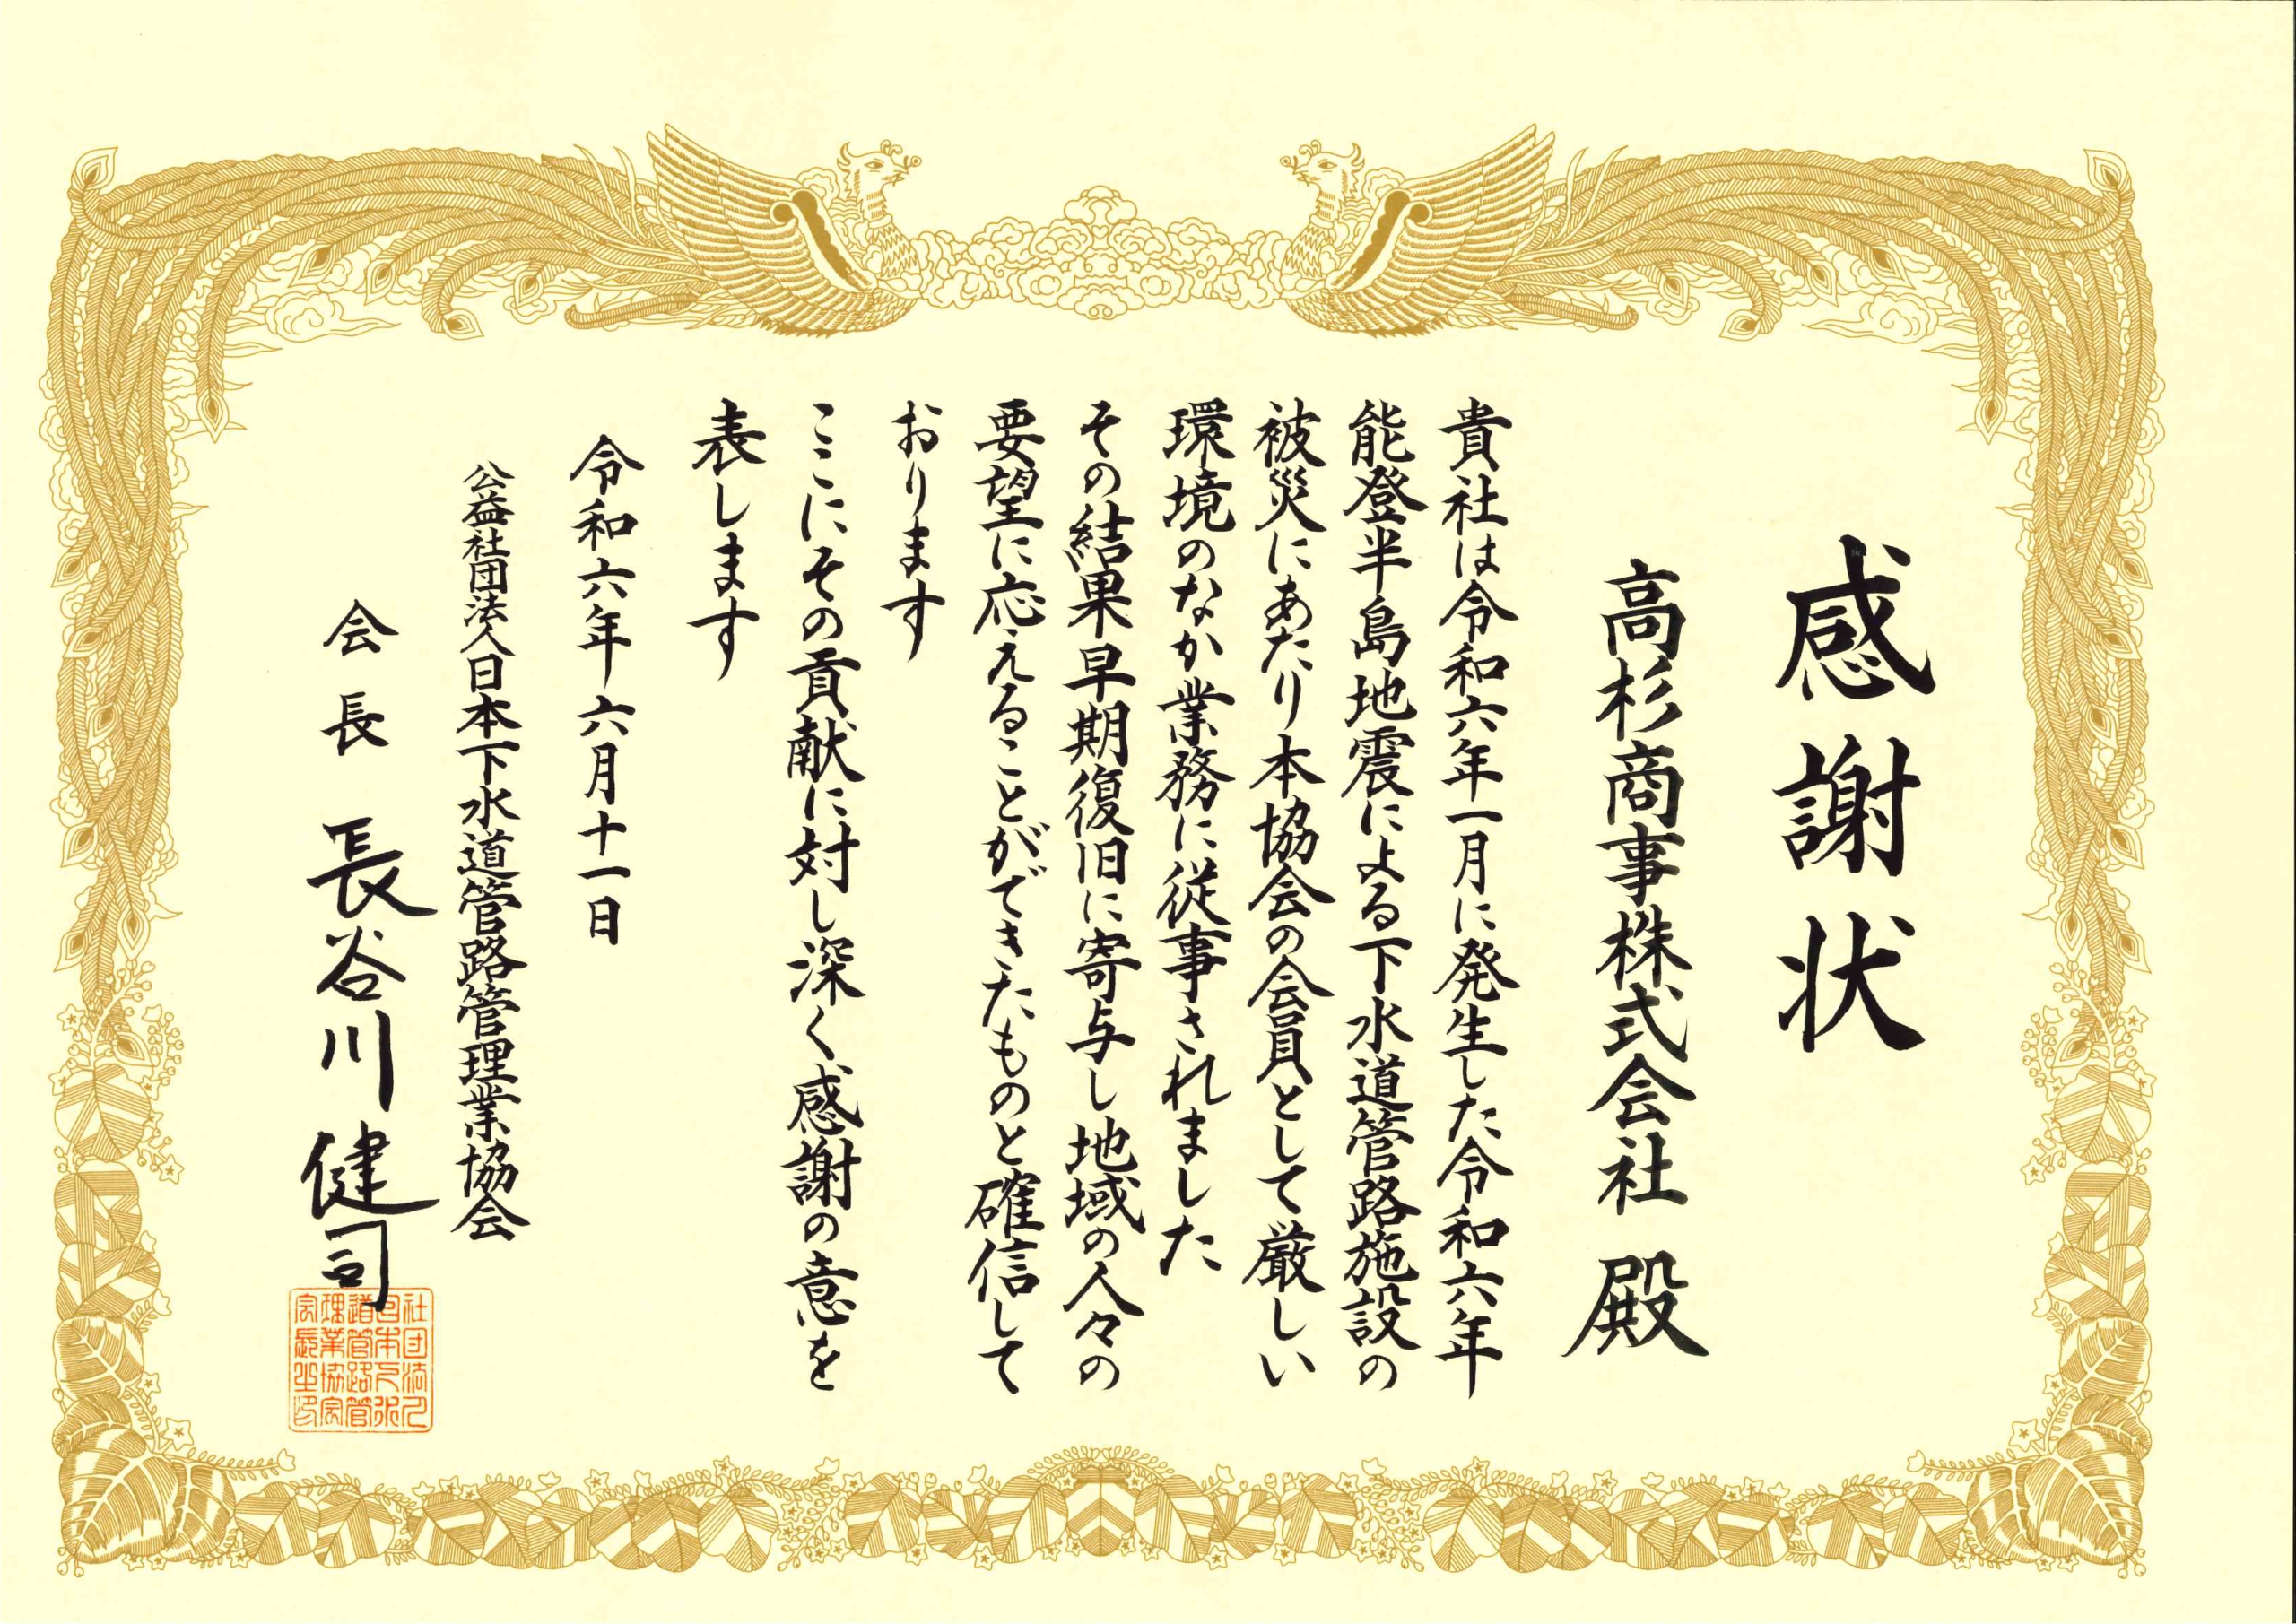 感謝状
高杉商事株式会社 殿
貴社は令和六年一月に発生した令和六年
能登半島地震による下水道管路施設の
被災にあたり本協会の会員として厳しい
環境のなか業務に従事されました
その結果早期復旧に寄与し地域の人々の
要望に応えることができたものと確信して
おります
ここにその貢献に対し深く感謝の意を
表します
令和六年六月十一日
公益社団法人日本下水道管路管理業協会
会長 長谷川健司
社団法人
日本下水
道管路管
理業協会
会長之印